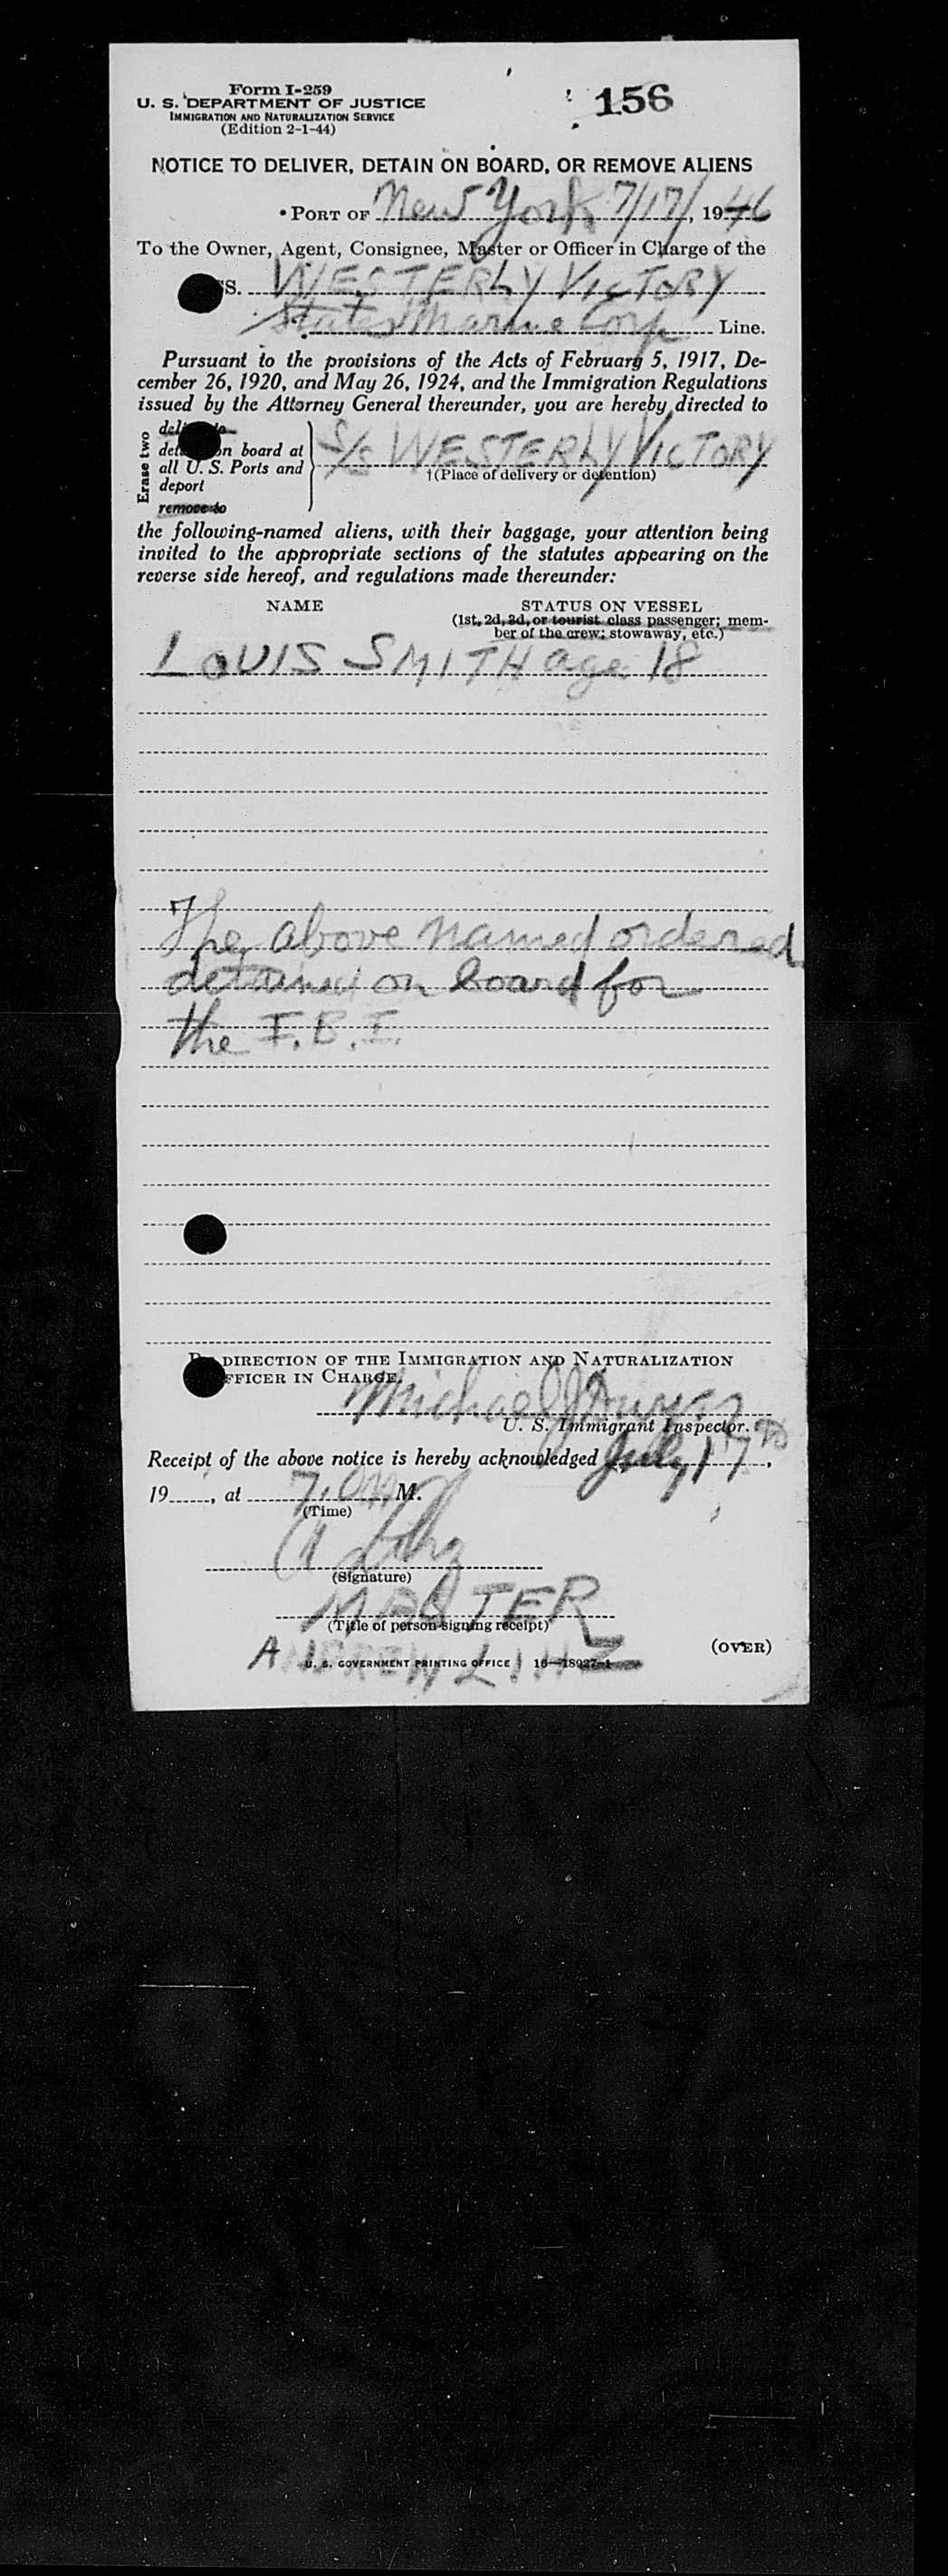 Form I-259
156
U. S. DEPARTMENT OF JUSTICE
IMMIGRATION AND NATURALIZATION SERVICE
(Edition 2-1-44)
NOTICE TO DELIVER, DETAIN ON BOARD, OR REMOVE ALIENS
PORT OF New York 7/17/, 1946
To the Owner, Agent, Consignee, Master or Officer in Charge of the
S. WESTERLY VICTORY
States Marine Corp Line.
Pursuant to the provisions of the Acts of February 5, 1917, De-
cember 26, 1920, and May 26, 1924, and the Immigration Regulations
issued by the Attorney General thereunder, you are hereby directed to
Erase two
on board at
all U. S. Ports and
deport
remove to
S/S WESTERLY VICTORY
†(Place of delivery or detention)
the following-named aliens, with their baggage, your attention being
invited to the appropriate sections of the statutes appearing on the
reverse side hereof, and regulations made thereunder:
NAME STATUS ON VESSEL
(1st, 2d, 3d, or tourist class passenger; mem-
ber of the crew; stowaway, etc.)
LOUIS SMITH age 18
The above named ordered
detained on board for
the F.B.I.
DIRECTION OF THE IMMIGRATION AND NATURALIZATION
OFFICER IN CHARGE.
Michael J
U. S. Immigrant Inspector.
Receipt of the above notice is hereby acknowledged July 17th,
19, at M.
(Time)
(Signature)
MASTER
(Title of person signing receipt)
(OVER)
U. S. GOVERNMENT PRINTING OFFICE 16—18927-1